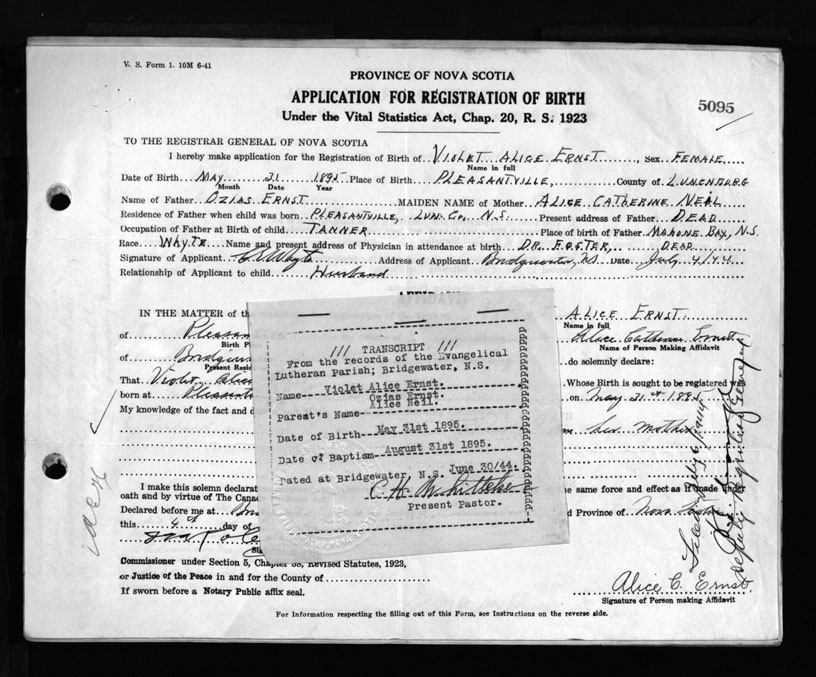 V. S. Form 1. 10M 6-41
PROVINCE OF NOVA SCOTIA
APPLICATION FOR REGISTRATION OF BIRTH
5095
Under the Vital Statistics Act, Chap. 20, R. S. 1923
TO THE REGISTRAR GENERAL OF NOVA SCOTIA
I hereby make application for the Registration of Birth of VIOLET ALICE ERNST, Sex FEMALE
Name in full
Date of Birth MAY 31 1895 Place of Birth PLEASANTVILLE, County of LUNENBURG
Month Date Year
Name of Father OZIAS ERNST MAIDEN NAME of Mother ALICE CATHERINE NEAL
Residence of Father when child was born PLEASANTVILLE, LUN. CO., N.S. Present address of Father DEAD
Occupation of Father at Birth of child TANNER Place of birth of Father MAHONE BAY, N.S.
Race WHYTE Name and present address of Physician in attendance at birth DR. FOSTER, DEAD
Signature of Applicant Whyte Address of Applicant Bridgewater, NS Date July 4/44
Relationship of Applicant to child Husband
AFFIDAVIT
IN THE MATTER of the ALICE ERNST
Name in full
of Pleasan Alice Catherine Ernst
Birth Pl Name of Person Making Affidavit
of Bridgew do solemnly declare:
Present Resid
That Violet Alice Whose Birth is sought to be registered w
born at Pleasant on May 31st 1895
My knowledge of the fact and d m her mother
I make this solemn declarat he same force and effect as if made under
oath and by virtue of The Canad
Declared before me at Bri d Province of Nova Scotia
this 4th day of
Commissioner under Section 5, Chapter 38, Revised Statutes, 1923,
or Justice of the Peace in and for the County of
If sworn before a Notary Public affix seal.
Alice C. Ernst
Signature of Person making Affidavit
For Information respecting the filling out of this Form, see Instructions on the reverse side.
/// TRANSCRIPT ///
From the records of the Evangelical
Lutheran Parish; Bridgewater, N.S.
Name Violet Alice Ernst.
Ozias Ernst.
Parent's Name Alice Neil.
Date of Birth May 31st 1895.
Date of Baptism August 31st 1895.
Dated at Bridgewater N.S. June 30/44.
Present Pastor.
Deputy Registrar General